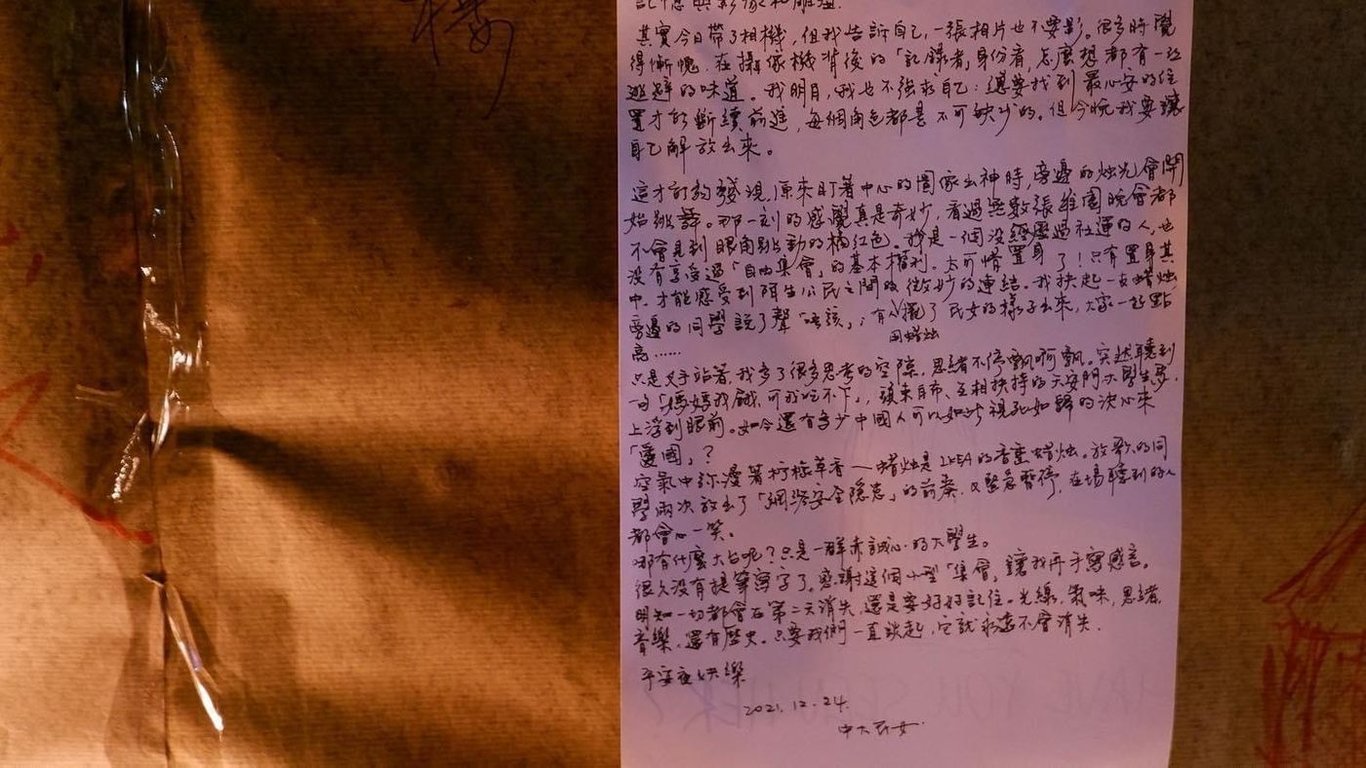 記憶與影像和雕塑.
其實今日帶了相機,但我告訴自己,一張相片也不要影。很多時覺
得慚愧,在攝像機背後的「記錄者」身份看,怎麼想都有一改
逃避的味道。我明白,我也不強求自己:總要找到最心安的位
置才能斷續前進,每個角色都是不可缺少的。但今晚我要讓
自己解放出來。
這才訝然發現,原來盯著中心的圖像出神時,旁邊的燭光會開
始跳舞。那一刻的感覺真是奇妙,看過無數張維園晚會都
不會見到眼角點動的橘紅色。我是一個沒經歷過社運的人,也
沒有享受過「自由集會」的基本權利。太可惜了!只有置身其
中,才能感受到陌生公民之間微妙的連結。我扶起一支蠟燭
旁邊的同學說了聲「唔該」;有人擺了民女的樣子出來,大家一起點
用蠟燭
高……
只是叉手站著,我多了很多思考的空隙,思緒不停飄啊飄。突然聽到
一句「媽媽我餓,可我吃不下」,頭束白布、互相扶持的天安門大學生馬
上浮到眼前。如今還有多少中國人可以如此視死如歸的決心來
「愛國」?
空氣中弥漫著柠檬草香——蠟燭是IKEA的香薰蠟燭。放歌的同
學兩次放出了「網絡安全隱患」的前奏,又緊急暫停,在場聽到的人
都會心一笑。
哪有什麼大台呢?只是一群赤誠心的大學生。
很久沒有提筆寫字了。感謝這個小型「集會」讓我再手寫感言。
明知一切都會在第二天消失,還是要好好記住。光線,氣味,思緒,
音樂,還有歷史。只要我們一直談起,它就永遠不會消失.
平安夜快樂
2021.12.24.
中大民女